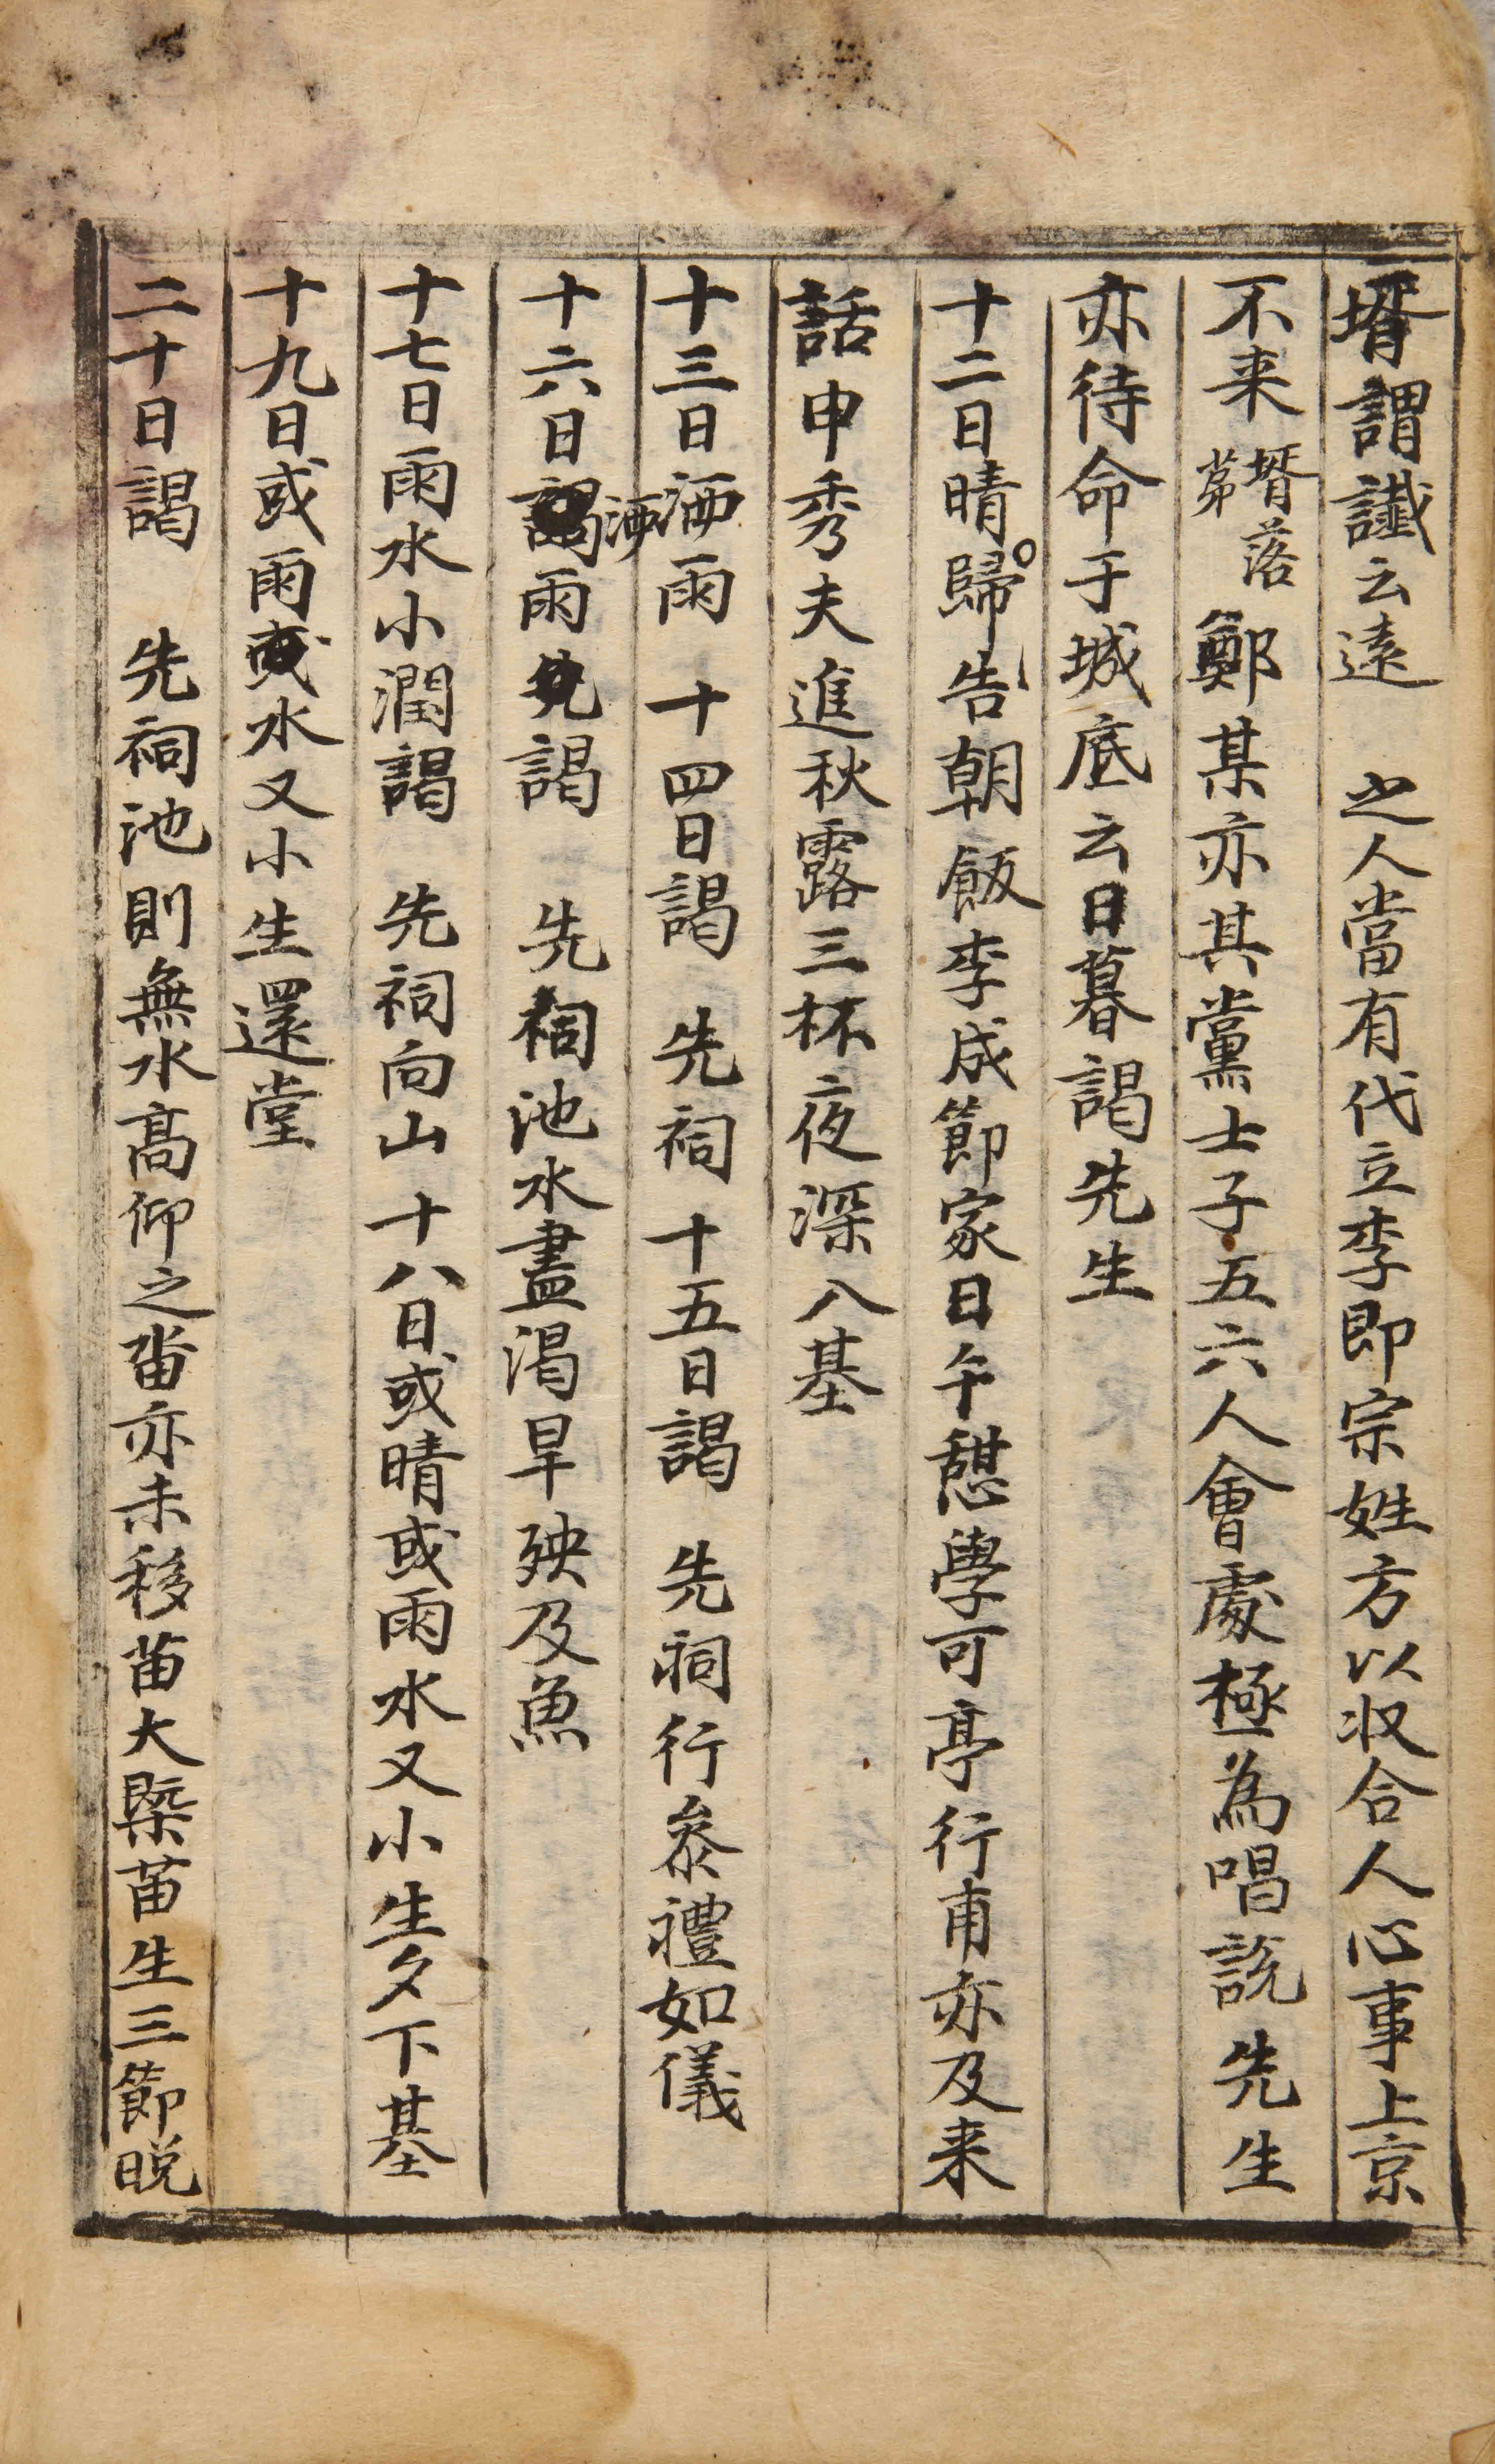 壻謂讖云遠 之人當有代立李即宗姓方以收合人心事上京
不来壻落苐鄭某亦其黨士子五六人會處極為唱説先生
亦待命于城底云日暮謁先生
十二日晴歸告朝飯李成節家日午憇學可亭行甫亦及来
話申秀夫進秋露三杯夜深入基
十三日洒雨 十四日謁 先祠 十五日謁 先祠行叅禮如儀
十六日洒雨謁 先祠池水盡渴旱殃及魚
十七日雨水小潤謁 先祠向山 十八日或晴或雨水又小生夕下基
十九日或雨或水又小生還堂
二十日謁 先祠池則無水髙仰之畓亦未移苗大槩苗生三節晩